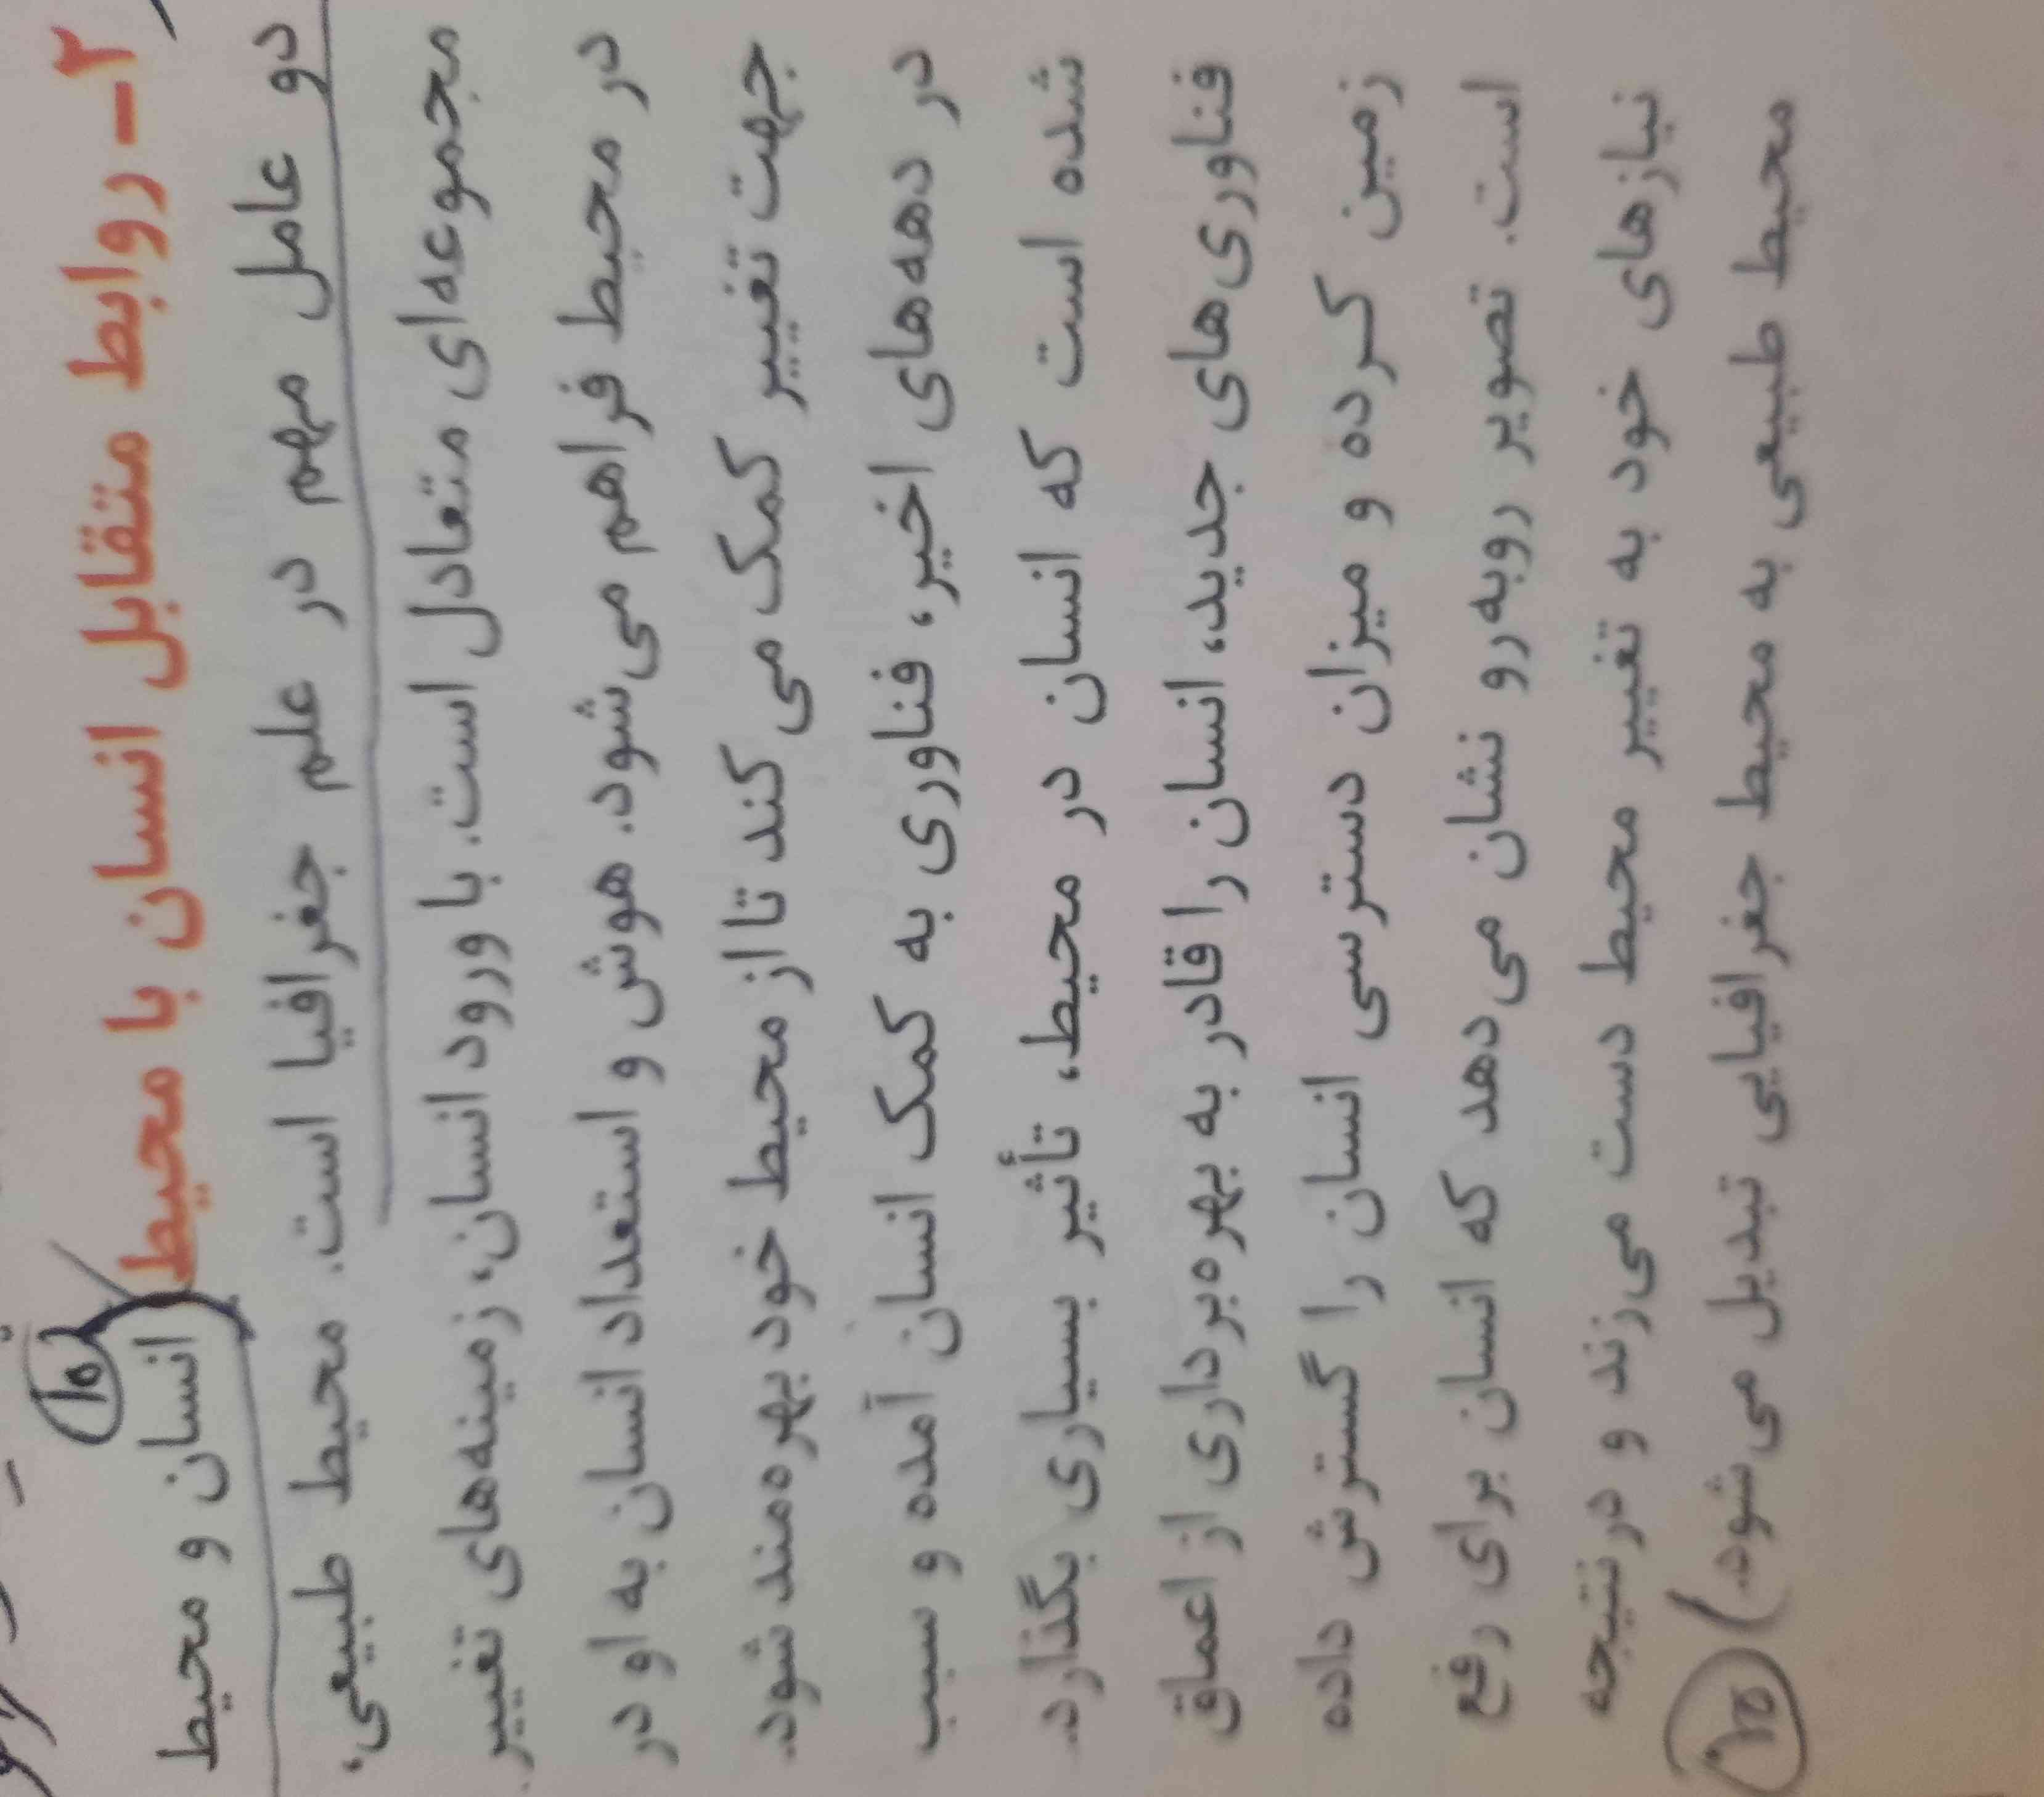 ۲- روابط متقابل انسان با محیط
انسان و محیط
دو عامل مهم در علم جغرافیا است. محیط طبیعی،
مجموعه‌ای متعادل است. با ورود انسان، زمینه‌های تغییر
در محیط فراهم می‌شود. هوش و استعداد انسان به او در
جهت تغییر کمک می کند تا از محیط خود بهره‌مند شود.
در دهه‌های اخیر، فناوری به کمک انسان آمده و سبب
شده است که انسان در محیط، تأثیر بسیاری بگذارد.
فناوری‌های جدید، انسان را قادر به بهره‌برداری از اعماق
زمین کرده و میزان دسترسی انسان را گسترش داده
است. تصویر روبه‌رو نشان می‌دهد که انسان برای رفع
نیازهای خود به تغییر محیط دست می‌زند و در نتیجه
محیط طبیعی به محیط جغرافیایی تبدیل می‌شود.)